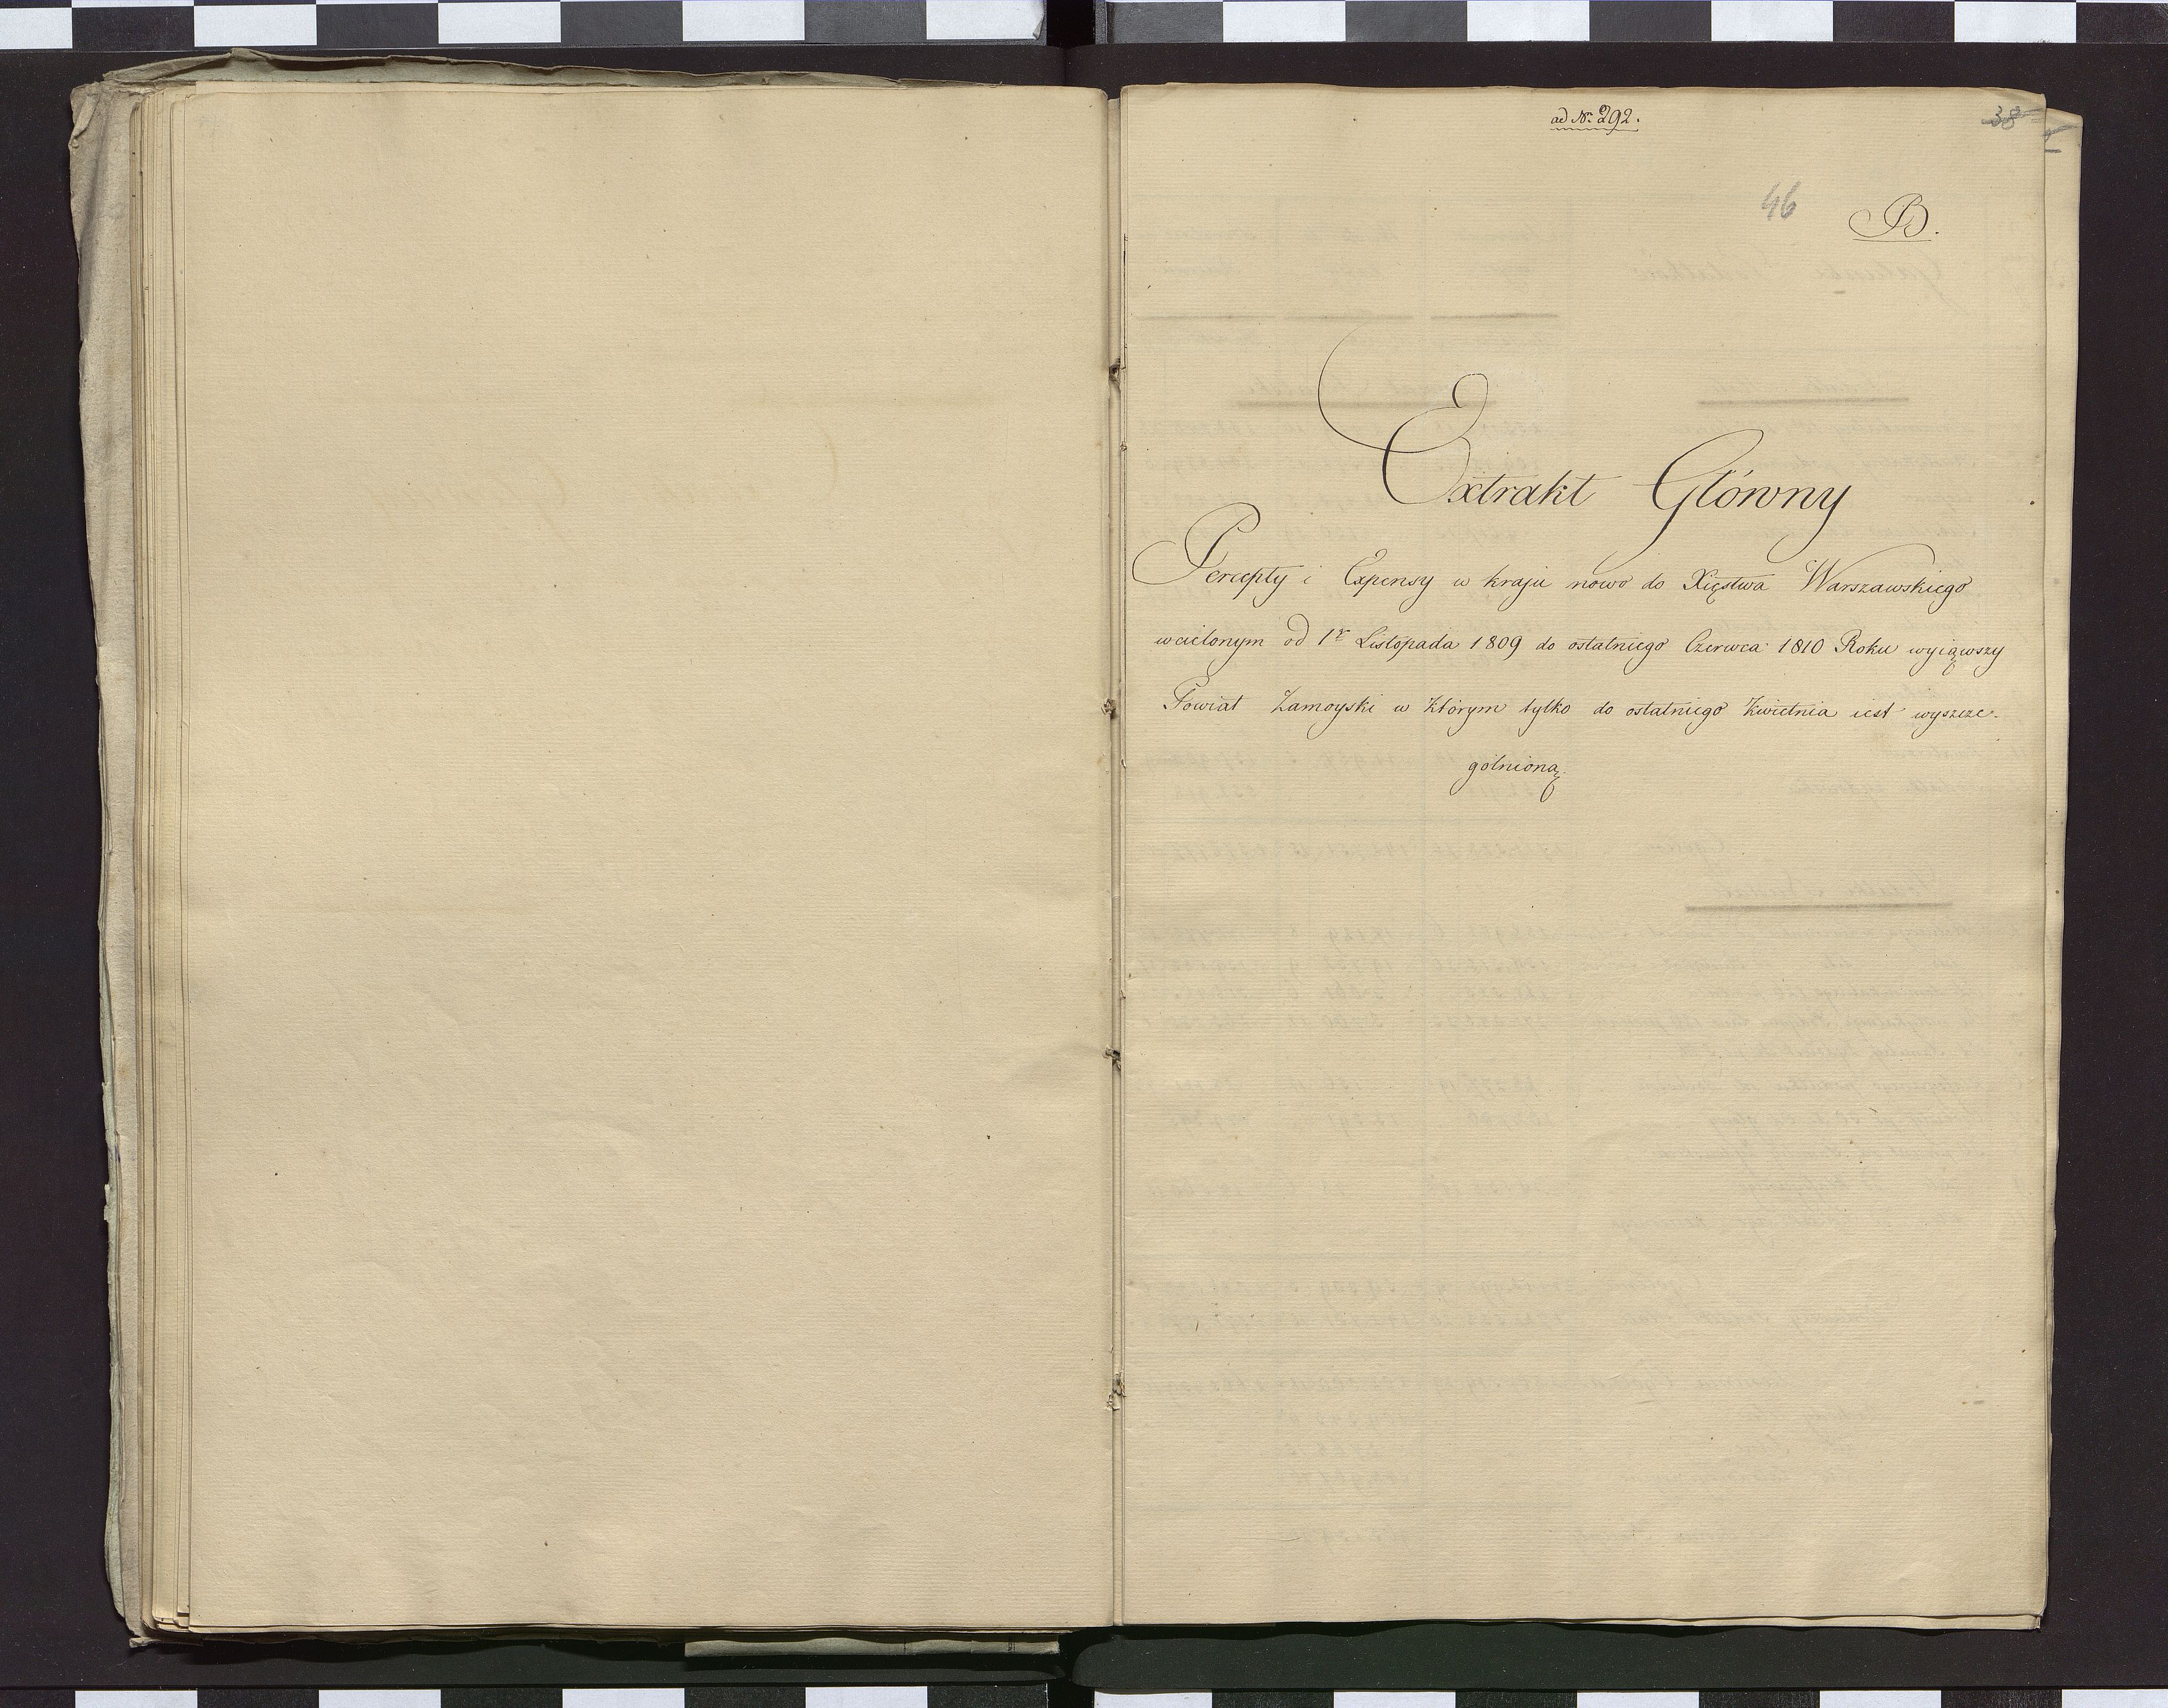 ad Nr. 292.
38
46
B.
Extrakt Główny
Percepty i Expensy w kraju nowo do Xięstwa Warszawskiego
wcielonym od 1r Listopada 1809 do ostatniego Czerwca 1810 Roku wyiąwszy
Powiat Zamoyski w którym tylko do ostatniego Kwietnia iest wyszcze-
gólnioną.